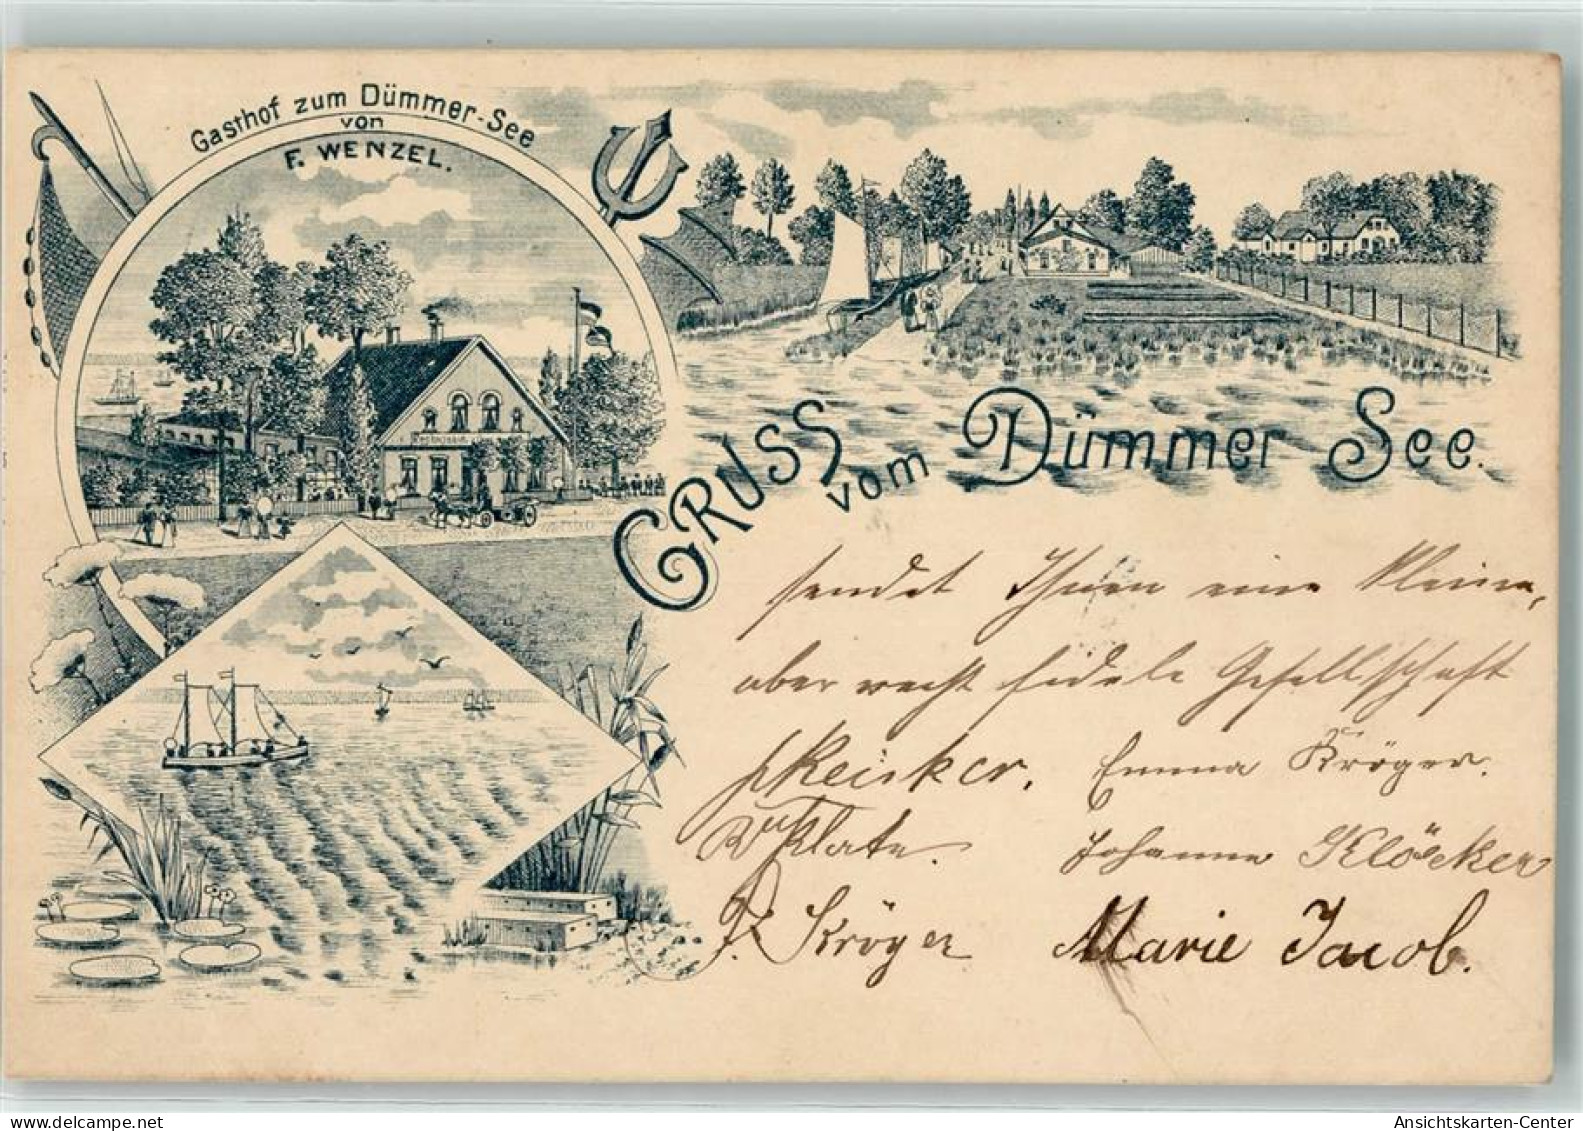 Gasthof zum Dümmer-See
von
F. WENZEL.
GRUSS vom Dümmer See.
sendet Ihnen eine kleine,
aber recht fidele Gesellschaft
Reisker. Emma Kröger.
Klate. Johanne Klöcker
F. Kröger Marie Jacob.
Ansichtskarten-Center